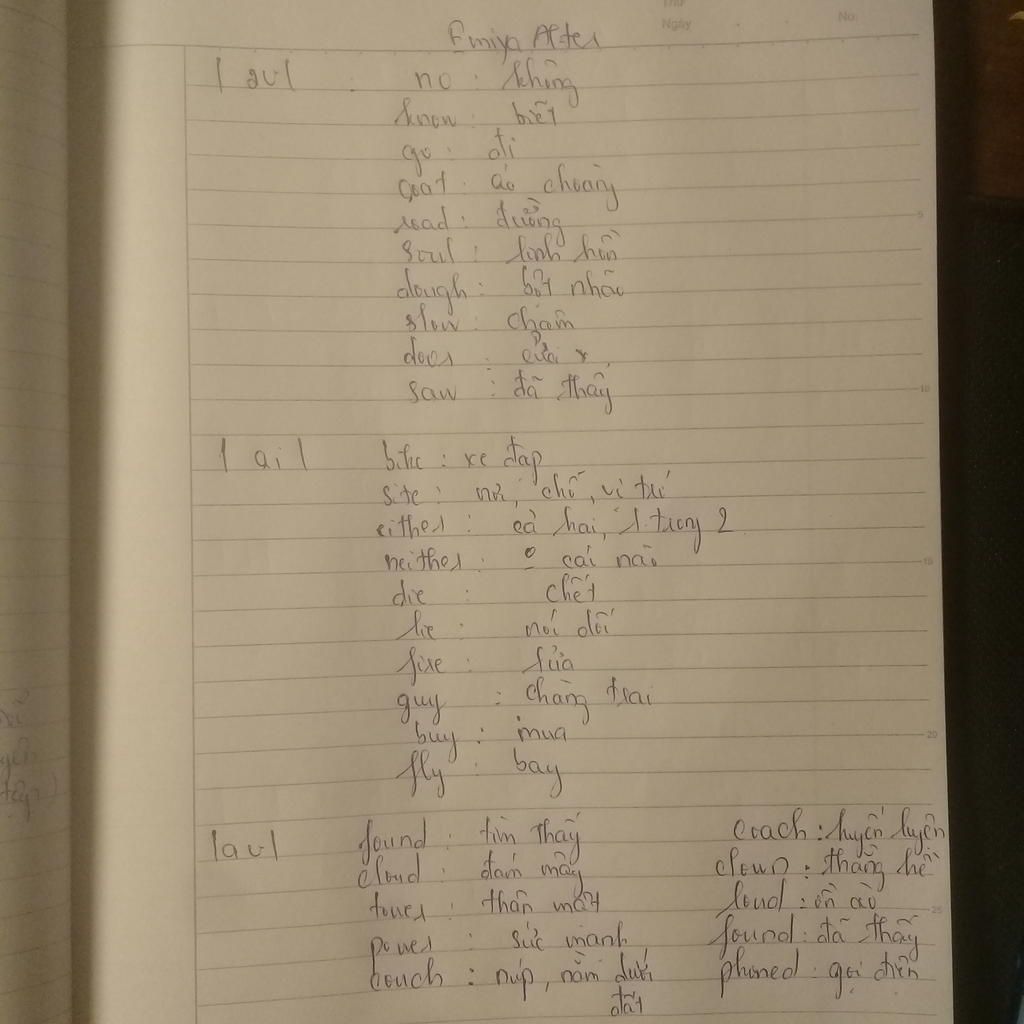 Thứ
Ngày No.
Emiya Alter
/əʊ/ : no : không
know : biết
go : đi
coat : áo choàng
road : đường
soul : linh hồn
dough : bột nhão
slow : chậm
door : cửa
saw : đã thấy
/ai/ bike : xe đạp
site : nơi, chỗ, vị trí
either : cả hai, 1 trong 2
neither : cái nào
die : chết
lie : nói dối
fire : sửa
guy : chàng trai
buy : mua
fly : bay
/aʊ/ found : tìm thấy coach : huyến luyện
cloud : đám mây clown : thằng hề
tower : thân mật loud : ồn ào
power : sức mạnh found : đã thấy
couch : núp, nằm dưới phoned : gọi điện
đất
5
10
15
20
25